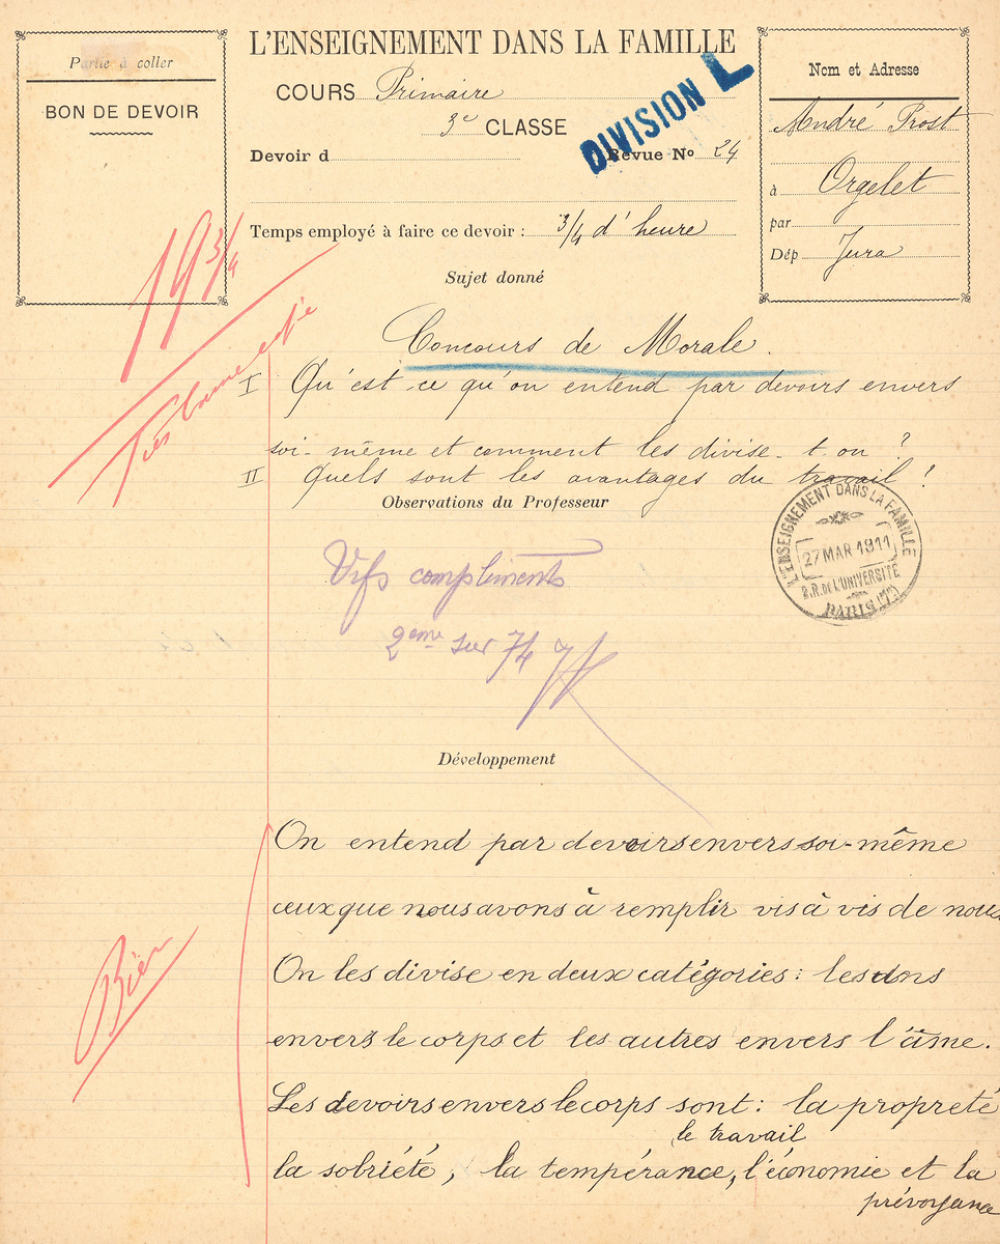 Partie à coller
BON DE DEVOIR
L'ENSEIGNEMENT DANS LA FAMILLE
COURS Primaire
3e CLASSE
DIVISION L
Devoir d
Revue No 24
Temps employé à faire ce devoir : 3/4 d'heure
Nom et Adresse
André Prost
à Orgelet
par
Dép Jura
19 3/4
Sujet donné
Concours de Morale.
I Qu'est-ce qu'on entend par devoirs envers
soi-même et comment les divise-t-on ?
II Quels sont les avantages du travail !
Observations du Professeur
L'ENSEIGNEMENT DANS LA FAMILLE
27 MAR 1911
R. DE L'UNIVERSITÉ
PARIS (7e)
Vifs compliments
2ème sur 74
Développement
On entend par devoirs envers soi-même
ceux que nous avons à remplir vis à vis de nous
On les divise en deux catégories : les uns
envers le corps et les autres envers l'âme.
Bien
Les devoirs envers le corps sont : la propreté
le travail
la sobriété, la tempérance, l'économie et la
prévoyance